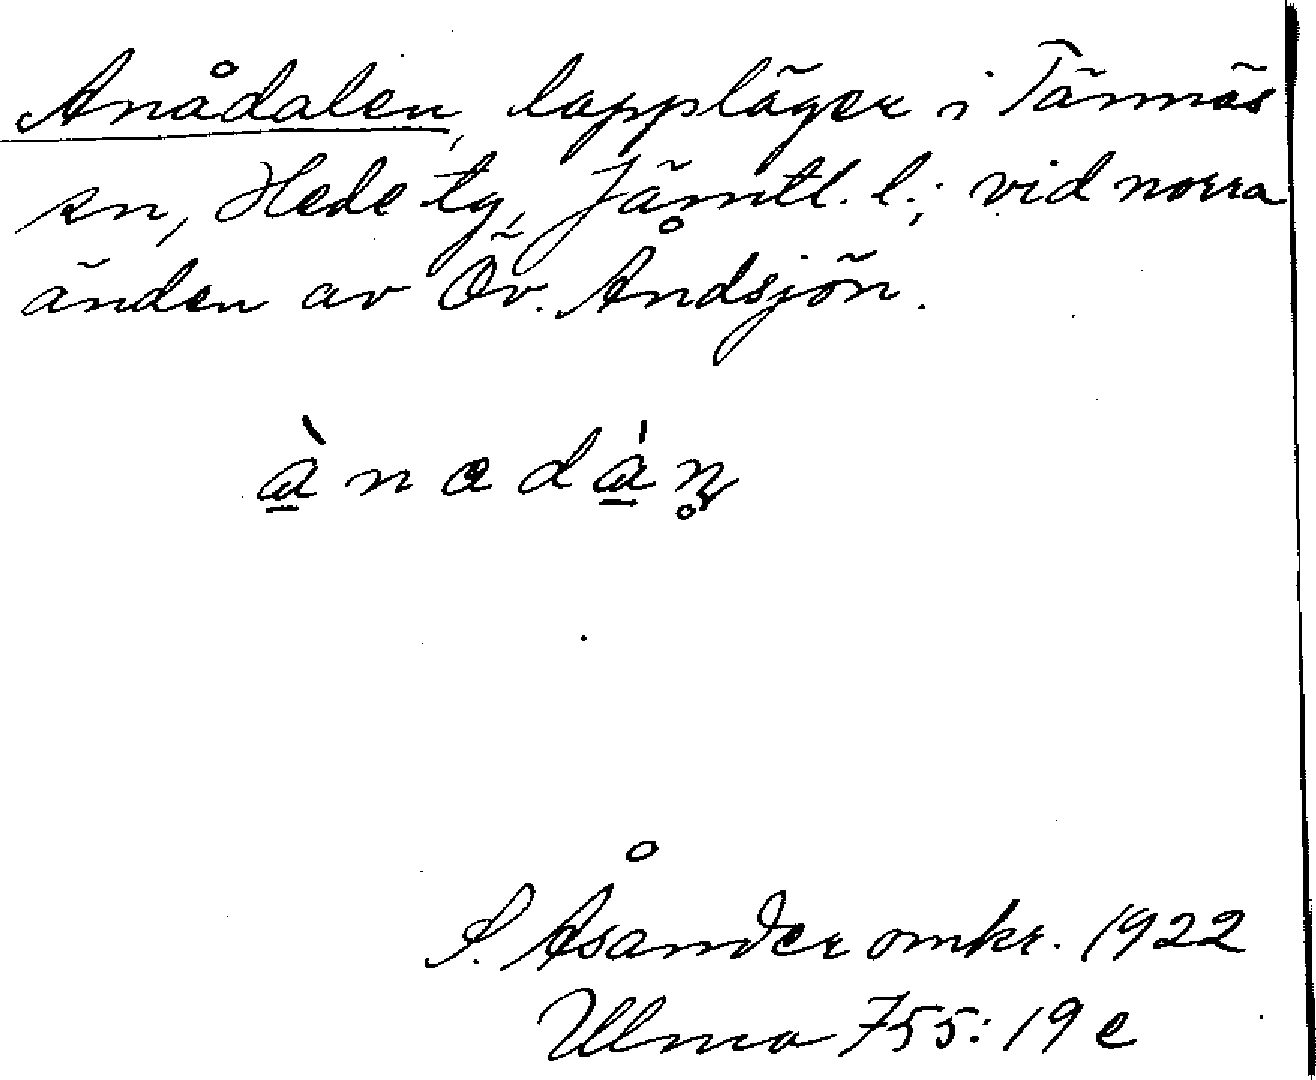 Anådalen, lappläger i Tännäs
sn, Hede tg, Jämtl. l.; vid norra
änden av Öv. Åndsjön.
S. Åsander omkr. 1922
Ulma 755:19 e